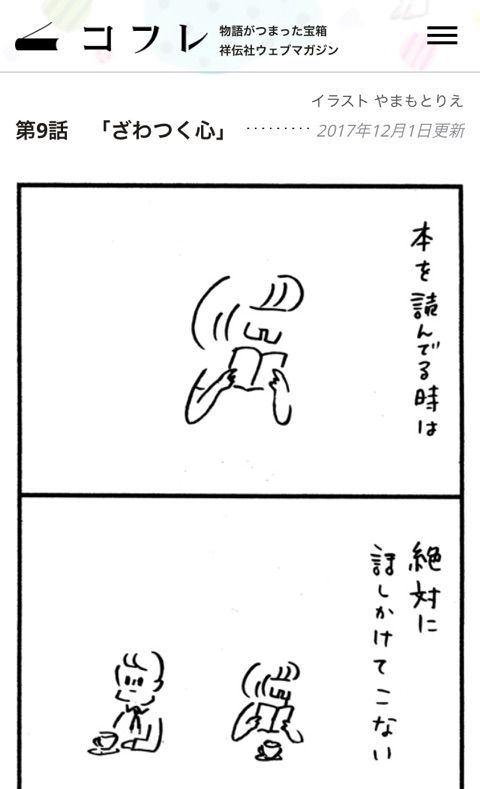 コフレ
物語がつまった宝箱
祥伝社ウェブマガジン
イラスト やまもとりえ
第9話 「ざわつく心」 ········· 2017年12月1日更新
本を読んでる時は
絶対に
話しかけてこない